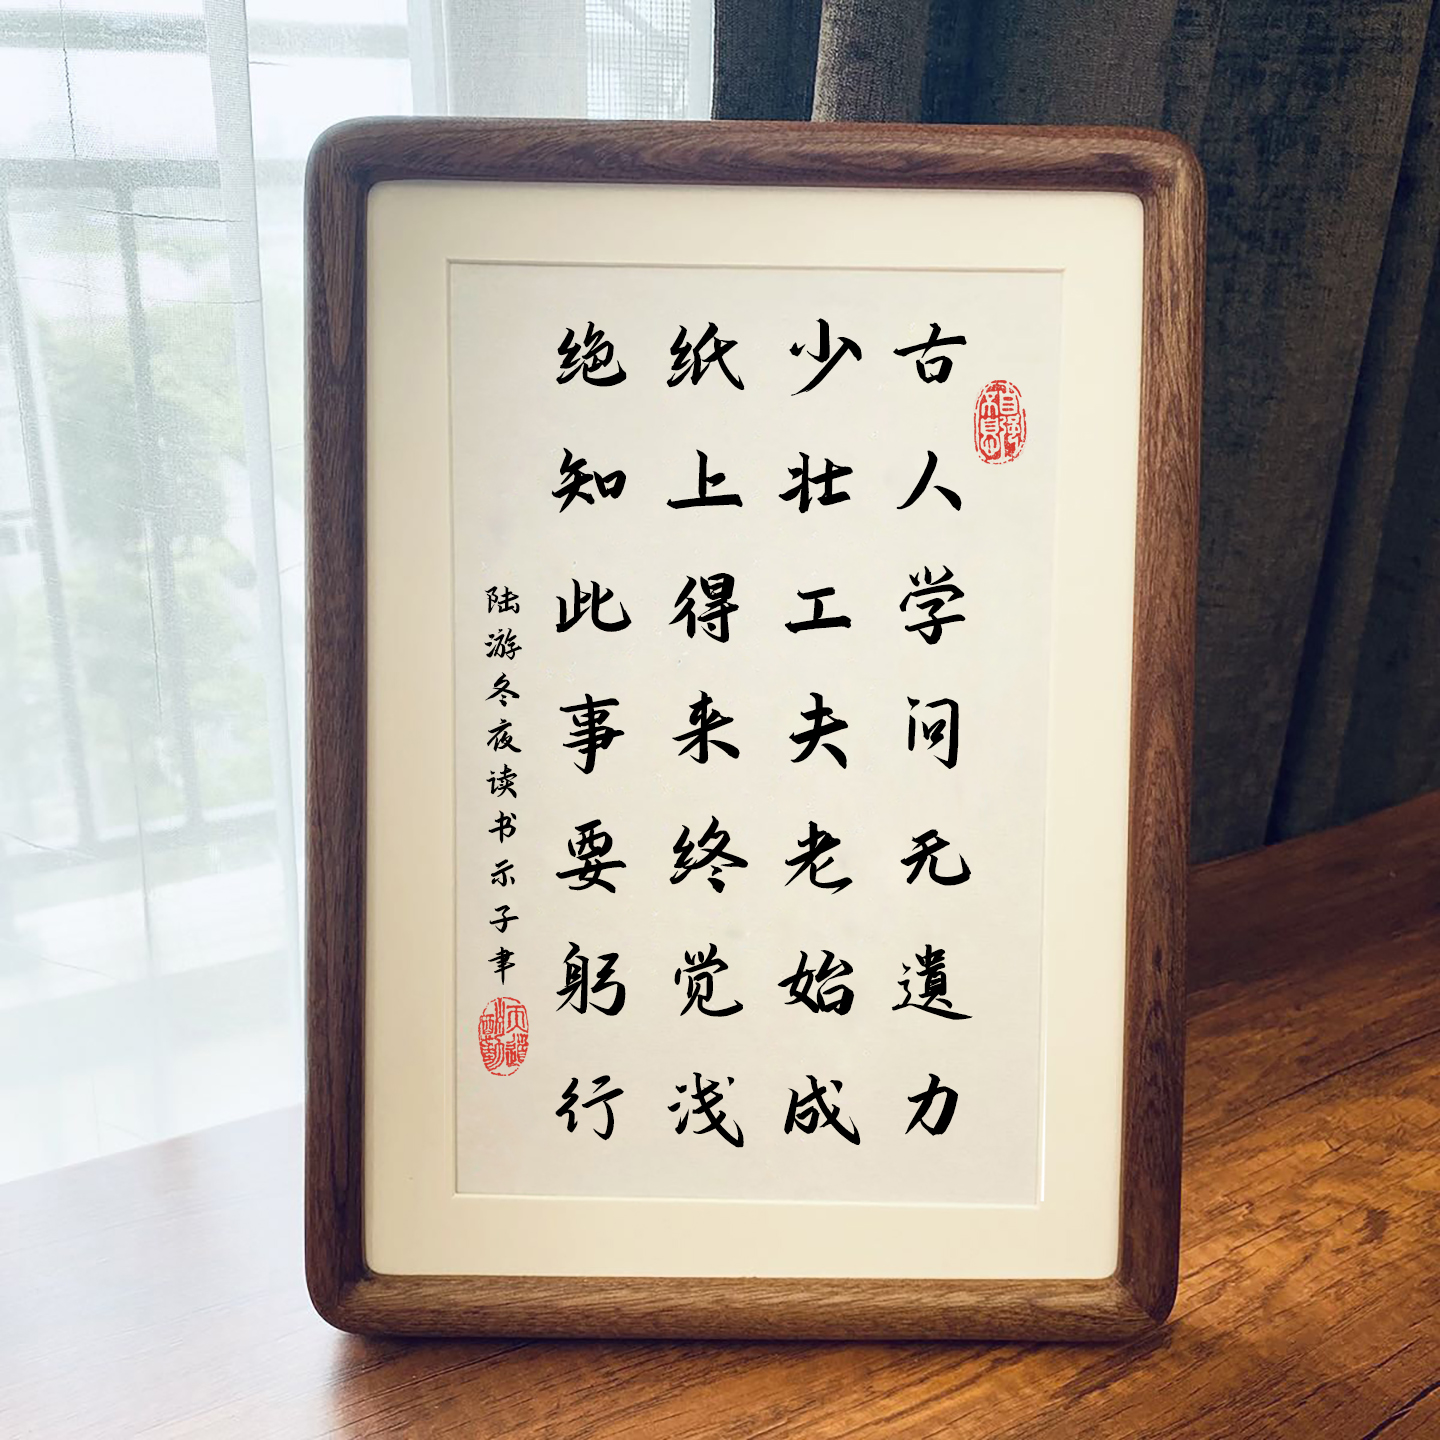 自强不息
古人学问无遺力
少壮工夫老始成
纸上得来终觉浅
绝知此事要躬行
陆游冬夜读书示子聿
天道酬勤